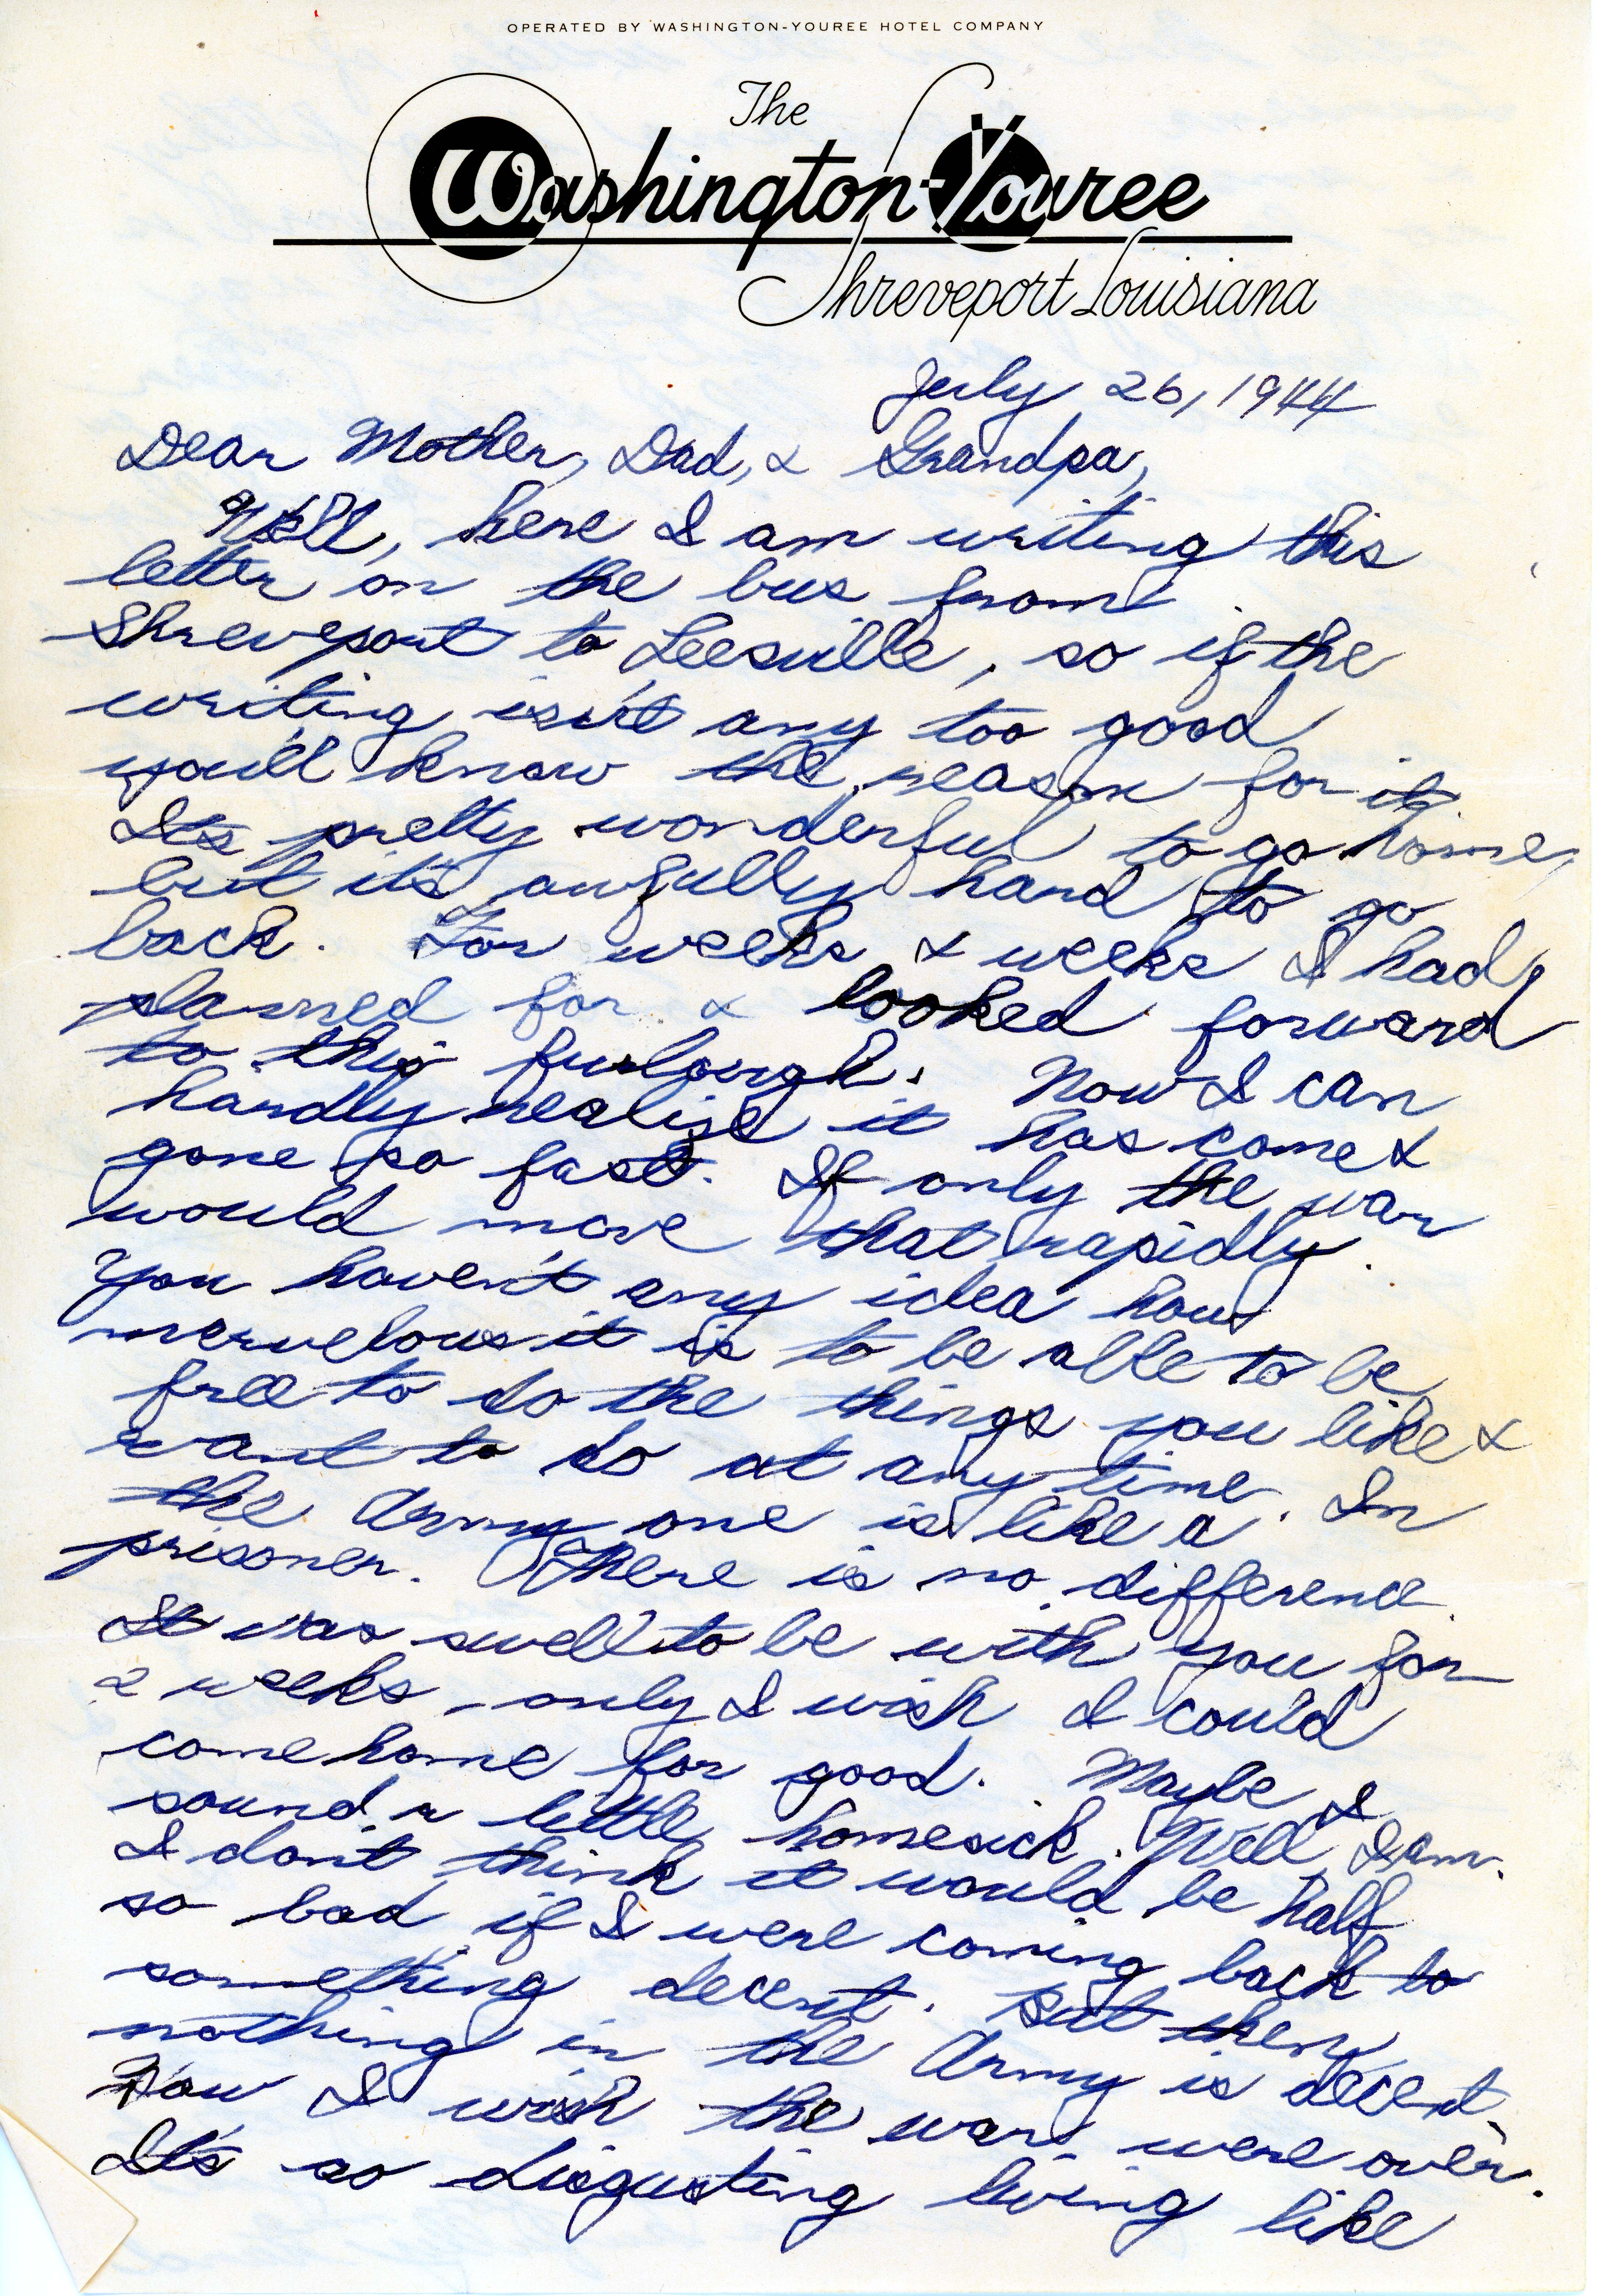 OPERATED BY WASHINGTON-YOUREE HOTEL COMPANY
The
Washington-Youree
Shreveport Louisiana
July 26, 1944
Dear Mother, Dad, & Grandpa,
Well, here I am writing this
letter on the bus from
Shreveport to Leesville, so if the
writing isn't any too good
you'll know the reason for it.
It's pretty wonderful to go home,
but it's awfully hard to go
back. For weeks & weeks I had
planned for & looked forward
to this furlough. Now I can
hardly realize it has come &
gone so fast. If only the war
would move that rapidly.
You haven't any idea how
marvelous it is to be able to be
free to do the things you like &
want to do at any time. In
the Army one is like a
prisoner. There is no difference.
It was swell to be with you for
2 weeks, only I wish I could
come home for good. Maybe I
sound a little homesick. Well, I am.
I don't think it would be half
so bad if I were coming back to
something decent. But then
nothing in the Army is decent.
How I wish the war were over.
It's so disgusting living like